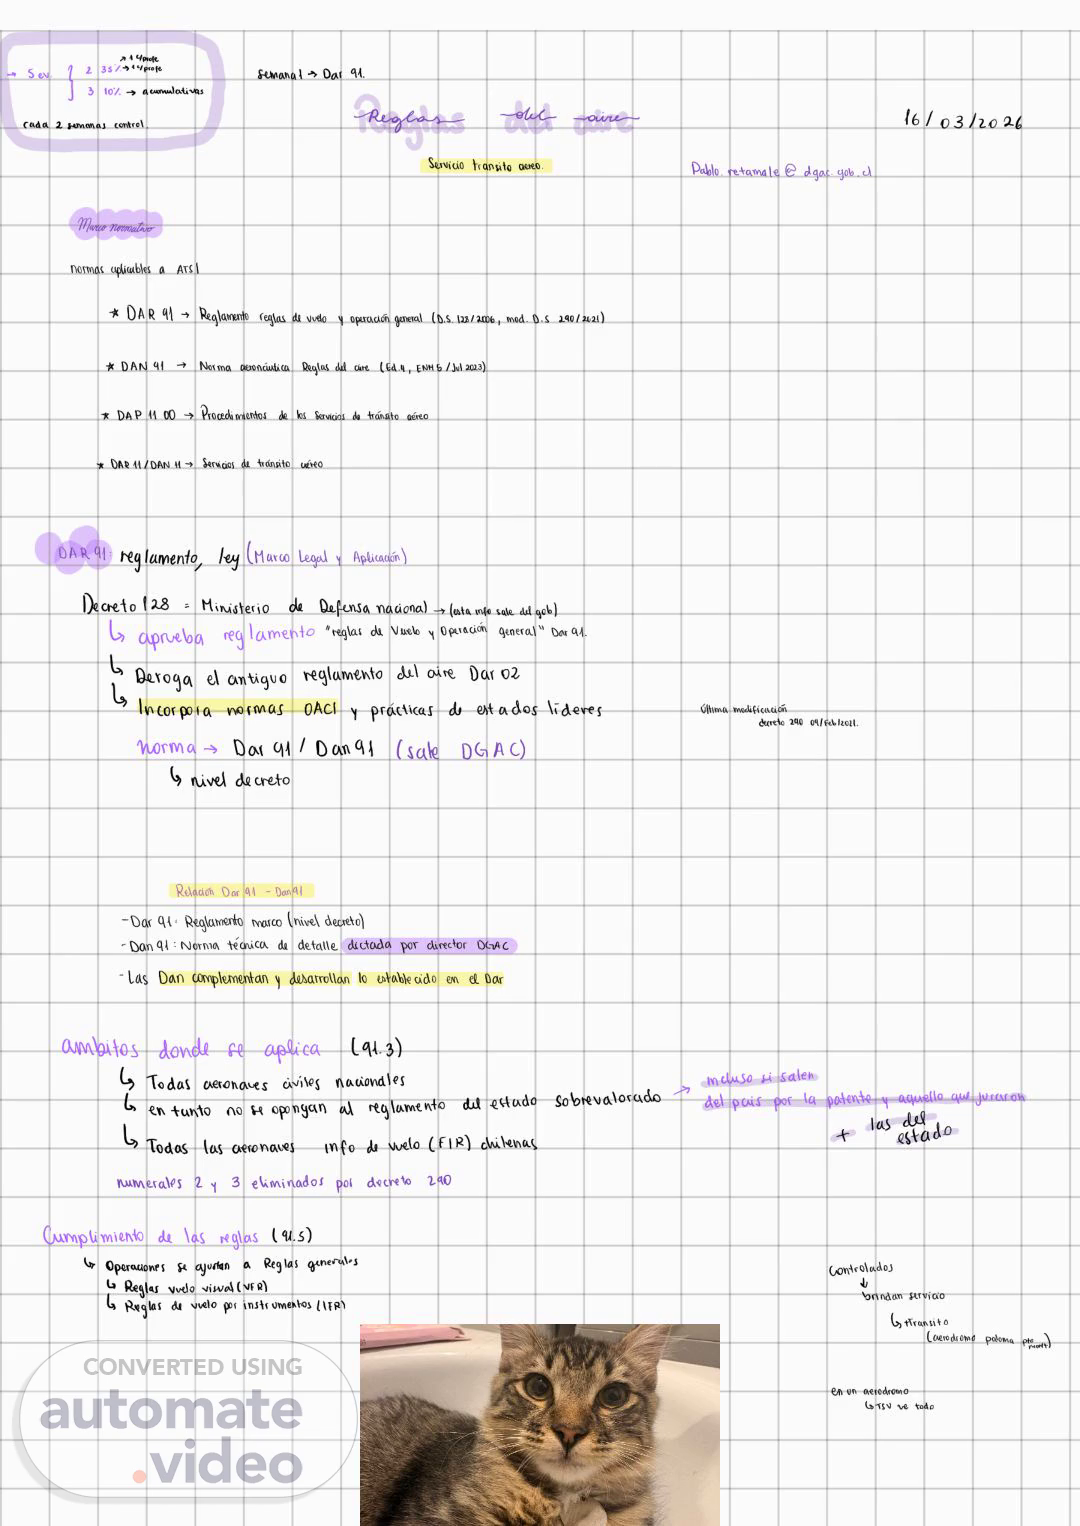 → 5 ev. 2 35% → 1 c/profe
→ 1 c/profe
3 10% → acumulativas
cada 2 semanas control.
Semanal → Dar 91.
Reglas del aire
16/03/2026
Servicio transito aereo.
Pablo.retamale@dgac.gob.cl
Marco normativo
normas aplicables a ATS
* DAR 91 → Reglamento reglas de vuelo y operación general (D.S. 128/2006, mod. D.S 290/2021)
* DAN 91 → Norma aeronáutica Reglas del aire (Ed.4, ENM 5 / Jul 2023)
* DAP 11 00 → Procedimientos de los Servicios de tránsito aéreo
* DAR 11/DAN 11 → Servicios de tránsito aéreo
DAR 91: reglamento, ley (Marco Legal y Aplicación)
Decreto 128 = Ministerio de Defensa nacional → (esta info sale del gob)
↳ aprueba reglamento "reglas de Vuelo y Operación general" Dar 91.
↳ Deroga el antiguo reglamento del aire Dar 02
↳ Incorpora normas OACI y prácticas de estados líderes
última modificación
decreto 290 09/Feb/2021.
norma → Dar 91 / Dan 91 (sale DGAC)
↳ nivel decreto
Relación Dar 91 - Dan 91
- Dar 91: Reglamento marco (nivel decreto)
- Dan 91: Norma técnica de detalle dictada por director DGAC
- Las Dan complementan y desarrollan lo establecido en el Dar
ambitos donde se aplica (91.3)
↳ Todas aeronaves civiles nacionales
↳ en tanto no se opongan al reglamento del estado sobrevalorado → incluso si salen
del pais por la patente y aquello que juraron
+ las del
estado
↳ Todas las aeronaves info de vuelo (FIR) chilenas
numerales 2 y 3 eliminados por decreto 290
Cumplimiento de las reglas (91.5)
↳ Operaciones se ajustan a Reglas generales
↳ Reglas vuelo visual (VFR)
↳ Reglas de vuelo por instrumentos (IFR)
Controlados
↓
brindan servicio
↳ tTransito
(aerodromo paloma pto montt)
en un aerodromo
CONVERTED USING
automate
.video